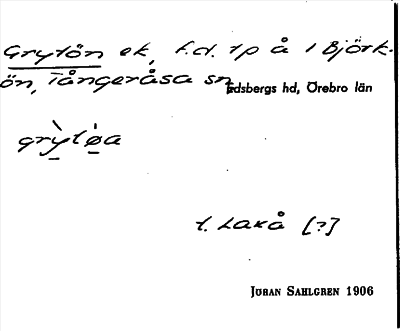 Grytön ek, f.d. tp å i Björk-
ön, Tångeråsa sn,
Edsbergs hd, Örebro län
grỳtøa
t. Laxå [?]
JOHAN SAHLGREN 1906